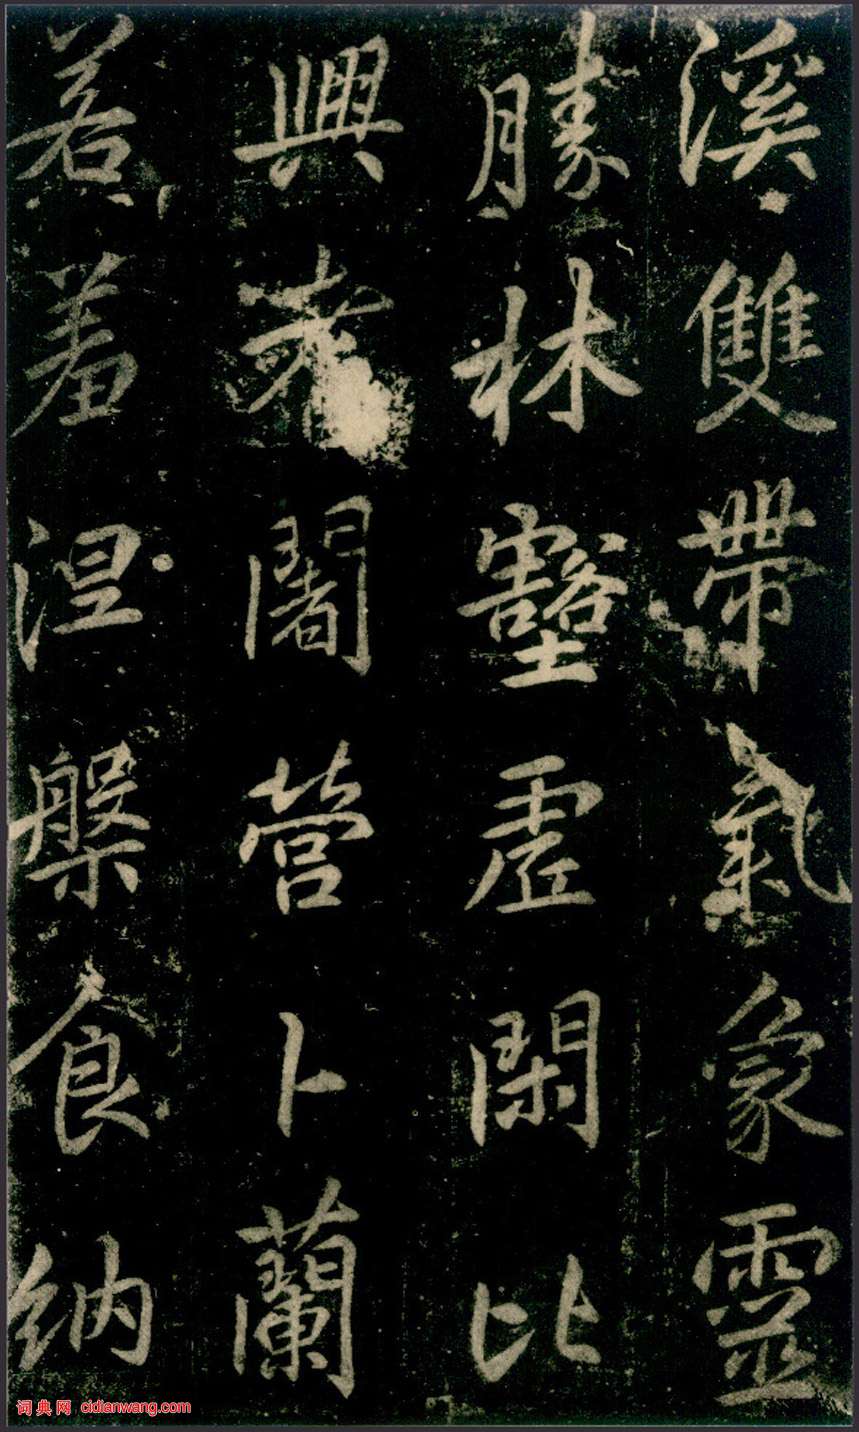 溪雙帶氣象靈
勝林壑虛閑比
興考闍營卜蘭
若羞涅槃食納
词典网 cidianwang.com